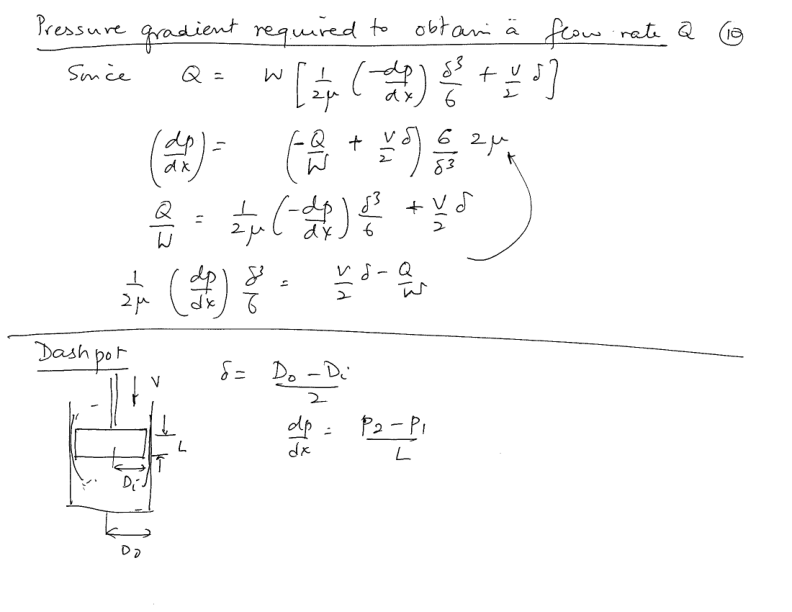 Pressure gradient required to obtain a flow rate Q (10)
Since Q = W [ 1/2μ (-dp/dx) δ³/6 + V/2 δ ]
(dp/dx) = (-Q/W + V/2 δ) 6/δ³ 2μ
Q/W = 1/2μ (-dp/dx) δ³/6 + V/2 δ
1/2μ (dp/dx) δ³/6 = V/2 δ - Q/W
Dashpot
δ = (D₀ - Di)/2
dp/dx = (P₂ - P₁)/L
V
L
Di
D₀